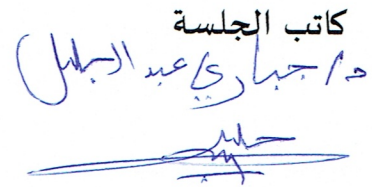 كاتب الجلسة
د/ جباري عبد الجليل